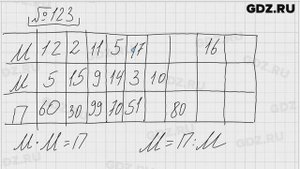 GDZ.RU
№123
М 12 2 11 5 17 16
М 5 15 9 14 3 10
П 60 30 99 70 51 80
М·М=П М=П:М
GDZ.RU